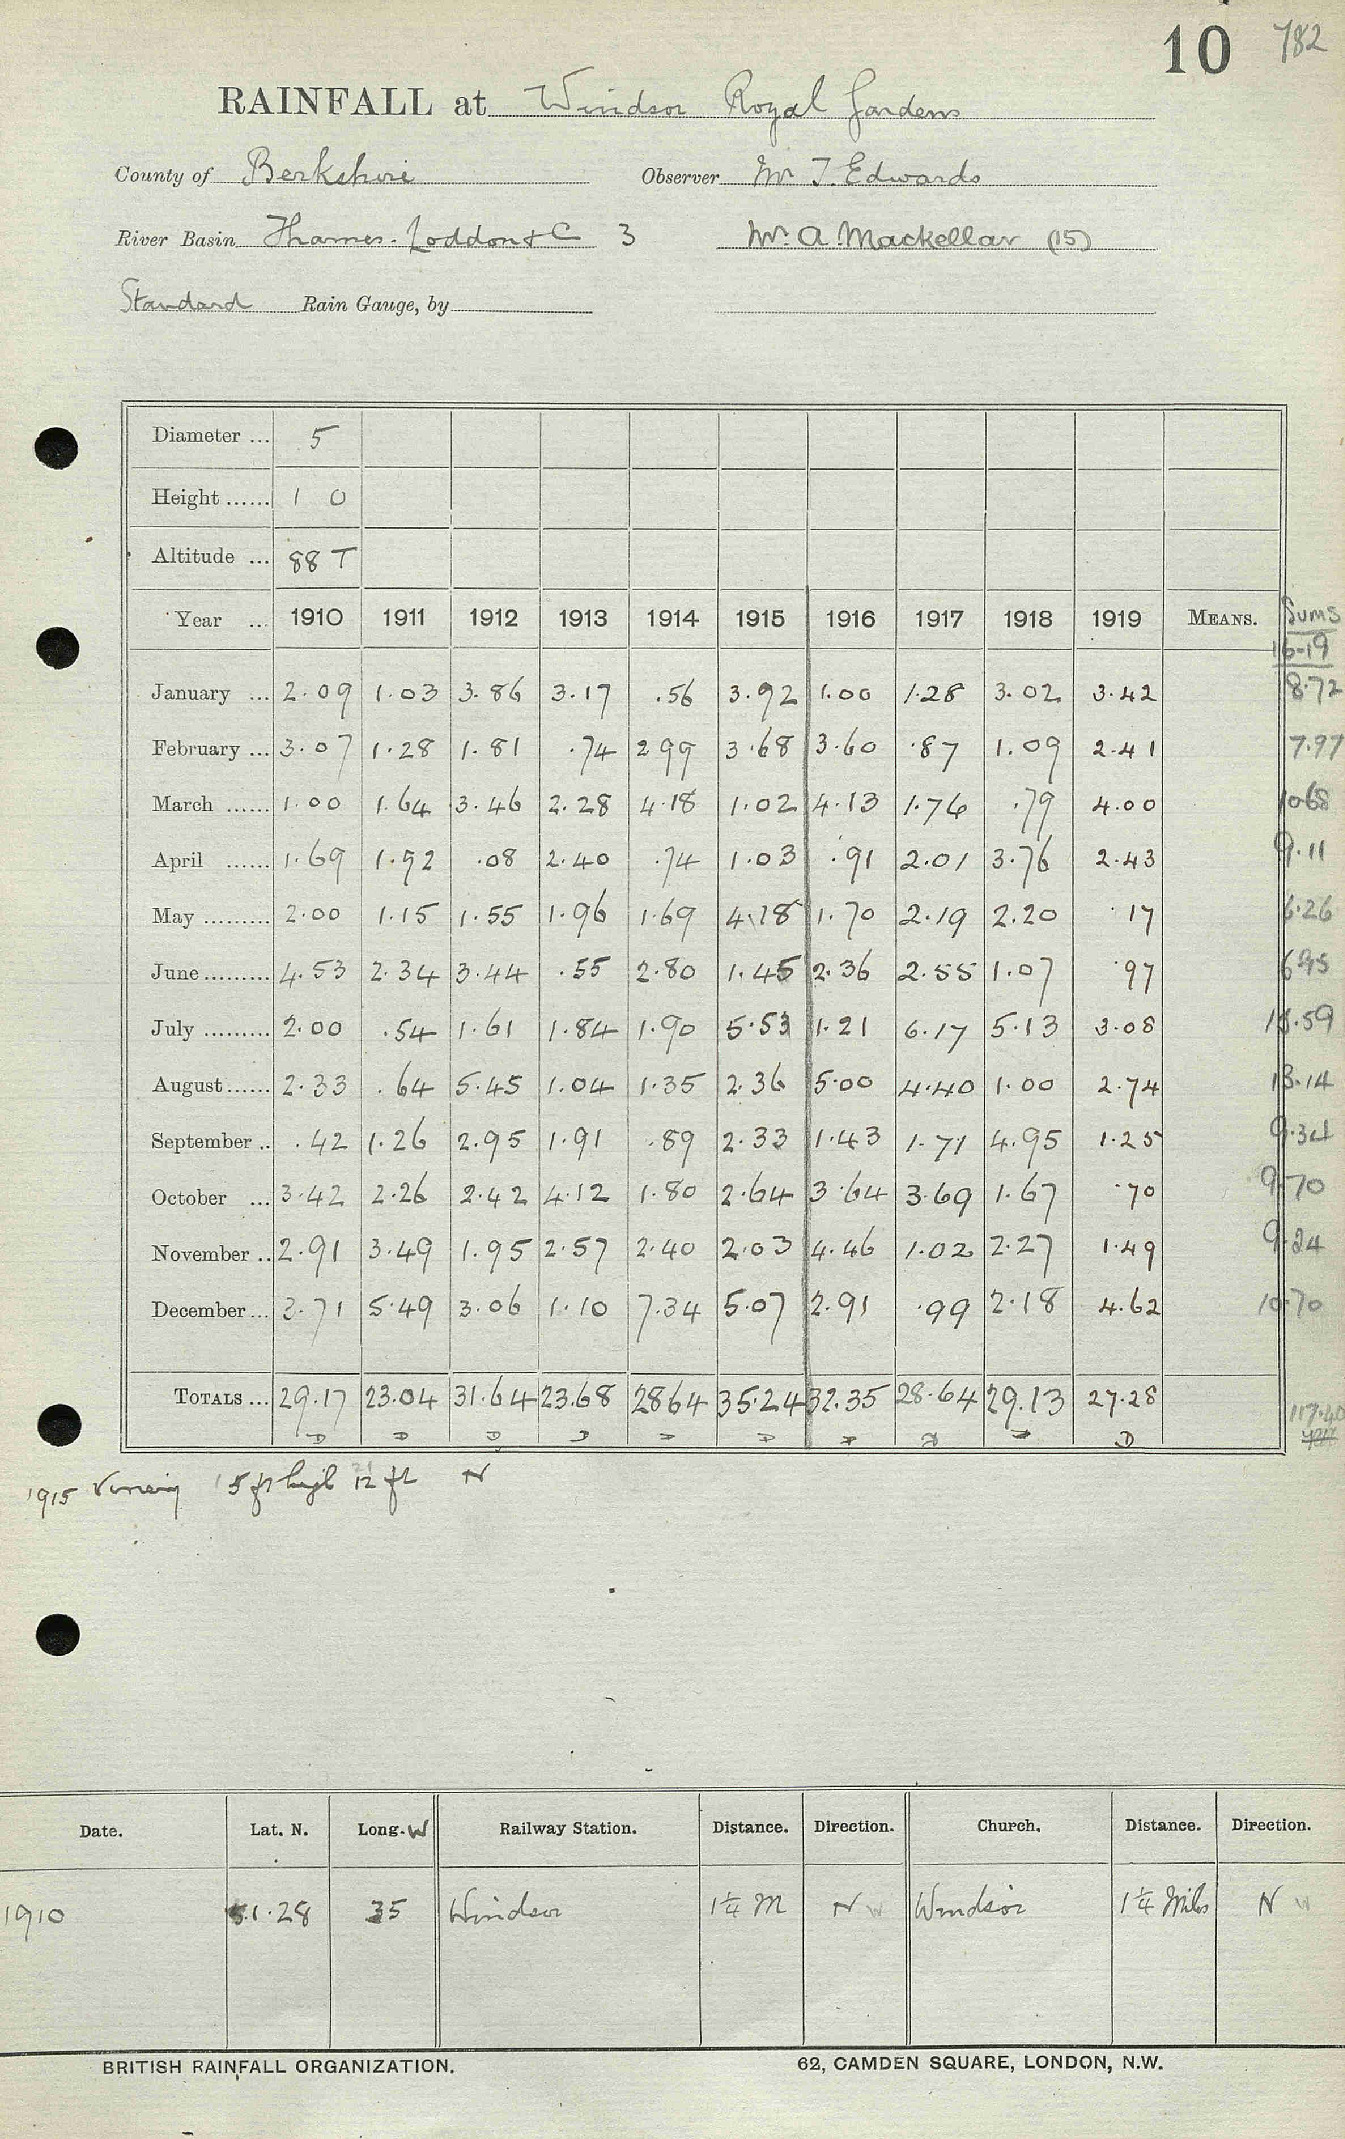 10 782
RAINFALL at Windsor Royal Gardens
County of Berkshire Observer Mr T. Edwards
River Basin Thames. Loddon & C 3 Mr. A. Mackellar (15)
Standard Rain Gauge, by
Diameter ... 5
Height ...... 1 0
Altitude ... 88 T
Year ... 1910 1911 1912 1913 1914 1915 1916 1917 1918 1919 MEANS. Sums
16-19
January ... 2.09 1.03 3.86 3.17 .56 3.92 1.00 1.28 3.02 3.42 8.72
February ... 3.07 1.28 1.81 .74 2.99 3.68 3.60 .87 1.09 2.41 7.97
March ...... 1.00 1.64 3.46 2.28 4.18 1.02 4.13 1.76 .79 4.00 10.68
April ...... 1.69 1.92 .08 2.40 .74 1.03 .91 2.01 3.76 2.43 9.11
May ......... 2.00 1.15 1.55 1.96 1.69 4.18 1.70 2.19 2.20 .17 6.26
June ......... 4.53 2.34 3.44 .55 2.80 1.45 2.36 2.55 1.07 .97 6.95
July ......... 2.00 .54 1.61 1.84 1.90 5.53 1.21 6.17 5.13 3.08 15.59
August ...... 2.33 .64 5.45 1.04 1.35 2.36 5.00 4.40 1.00 2.74 13.14
September .. .42 1.26 2.95 1.91 .89 2.33 1.43 1.71 4.95 1.25 9.34
October ... 3.42 2.26 2.42 4.12 1.80 2.64 3.64 3.69 1.67 .70 9.70
November .. 2.91 3.49 1.95 2.57 2.40 2.03 4.46 1.02 2.27 1.49 9.24
December ... 3.71 5.49 3.06 1.10 7.34 5.07 2.91 .99 2.18 4.62 10.70
TOTALS ... 29.17 23.04 31.64 23.68 28.64 35.24 32.35 28.64 29.13 27.28 117.40
D D D D D D D D D D
1915 Vinery 5 ft high 12 ft N
Date. Lat. N. Long. W Railway Station. Distance. Direction. Church. Distance. Direction.
1910 51.28 35 Windsor 1¼ M N W Windsor 1¼ Miles N W
BRITISH RAINFALL ORGANIZATION. 62, CAMDEN SQUARE, LONDON, N.W.